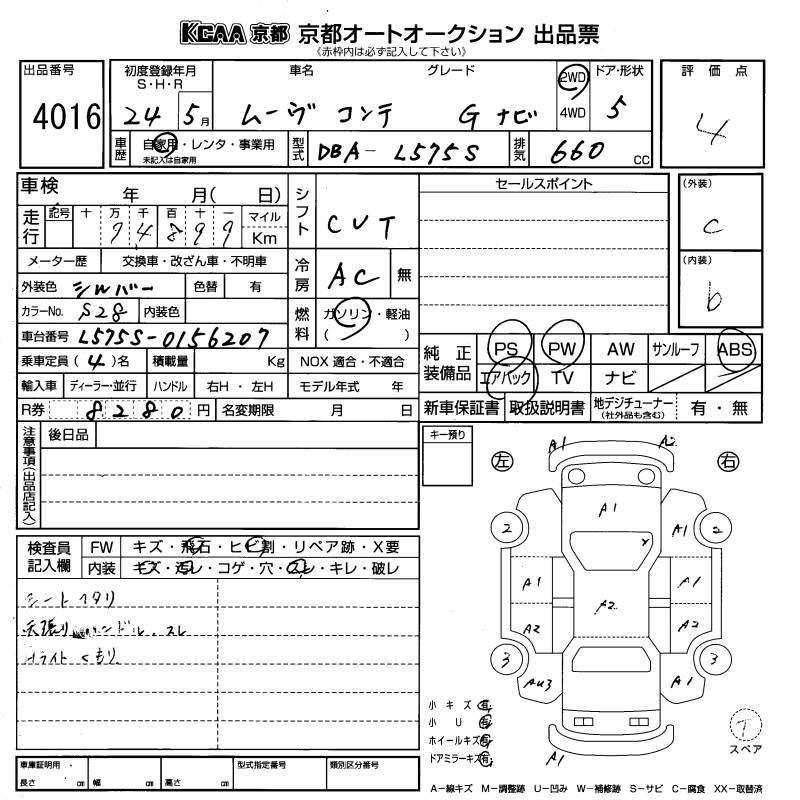 KCAA 京都 京都オートオークション 出品票
《赤枠内は必ず記入して下さい》
出品番号
4016
初度登録年月
S・H・R
24 5月
車名
グレード
ムーヴ コンテ G ナビ
2WD
4WD
ドア・形状
5
評価点
4
車歴
自家用・レンタ・事業用
未記入は自家用
型式
DBA-L575S
排気
660 CC
車検 年 月( 日)
シフト
CVT
セールスポイント
(外装)
C
(内装)
b
走行
記号 十 万 千 百 十 一
7 4 8 9 9
マイル
Km
メーター歴 交換車・改ざん車・不明車
冷房
AC
無
外装色 シルバー 色替 有
カラーNo. S28 内装色
燃料
ガソリン・軽油
( )
車台番号 L575S-0156207
乗車定員 (4)名 積載量 Kg NOX 適合・不適合
輸入車 ディーラー・並行 ハンドル 右H・左H モデル年式 年
R券 8280円 名変期限 月 日
純正装備品
PS PW AW サンルーフ ABS
エアバック TV ナビ
新車保証書 取扱説明書 地デジチューナー
(社外品も含む)
有・無
注意事項(出品店記入)
後日品
キー預り
左
右
A1 A2
A1
2 A1 2
A1 A1
A2
A2 A2
3 3
AU3 A1
A1
検査員記入欄
FW キズ・飛石・ヒビ割・リペア跡・X要
内装 キズ・汚レ・コゲ・穴・スレ・キレ・破レ
シート
天張り ハンドル・スレ
ライト くもり
小キズ 有
小U 有
ホイールキズ有
ドアミラーキズ有
T
スペア
車庫証明用 型式指定番号 類別区分番号
長さ cm 幅 cm 高さ cm
A-線キズ M-調整跡 U-凹み W-補修跡 S-サビ C-腐食 XX-取替済